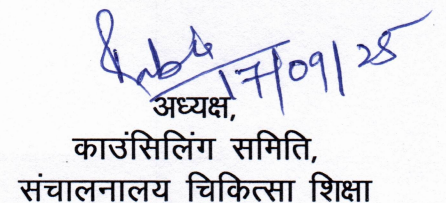 17/09/25
अध्यक्ष,
काउंसिलिंग समिति,
संचालनालय चिकित्सा शिक्षा